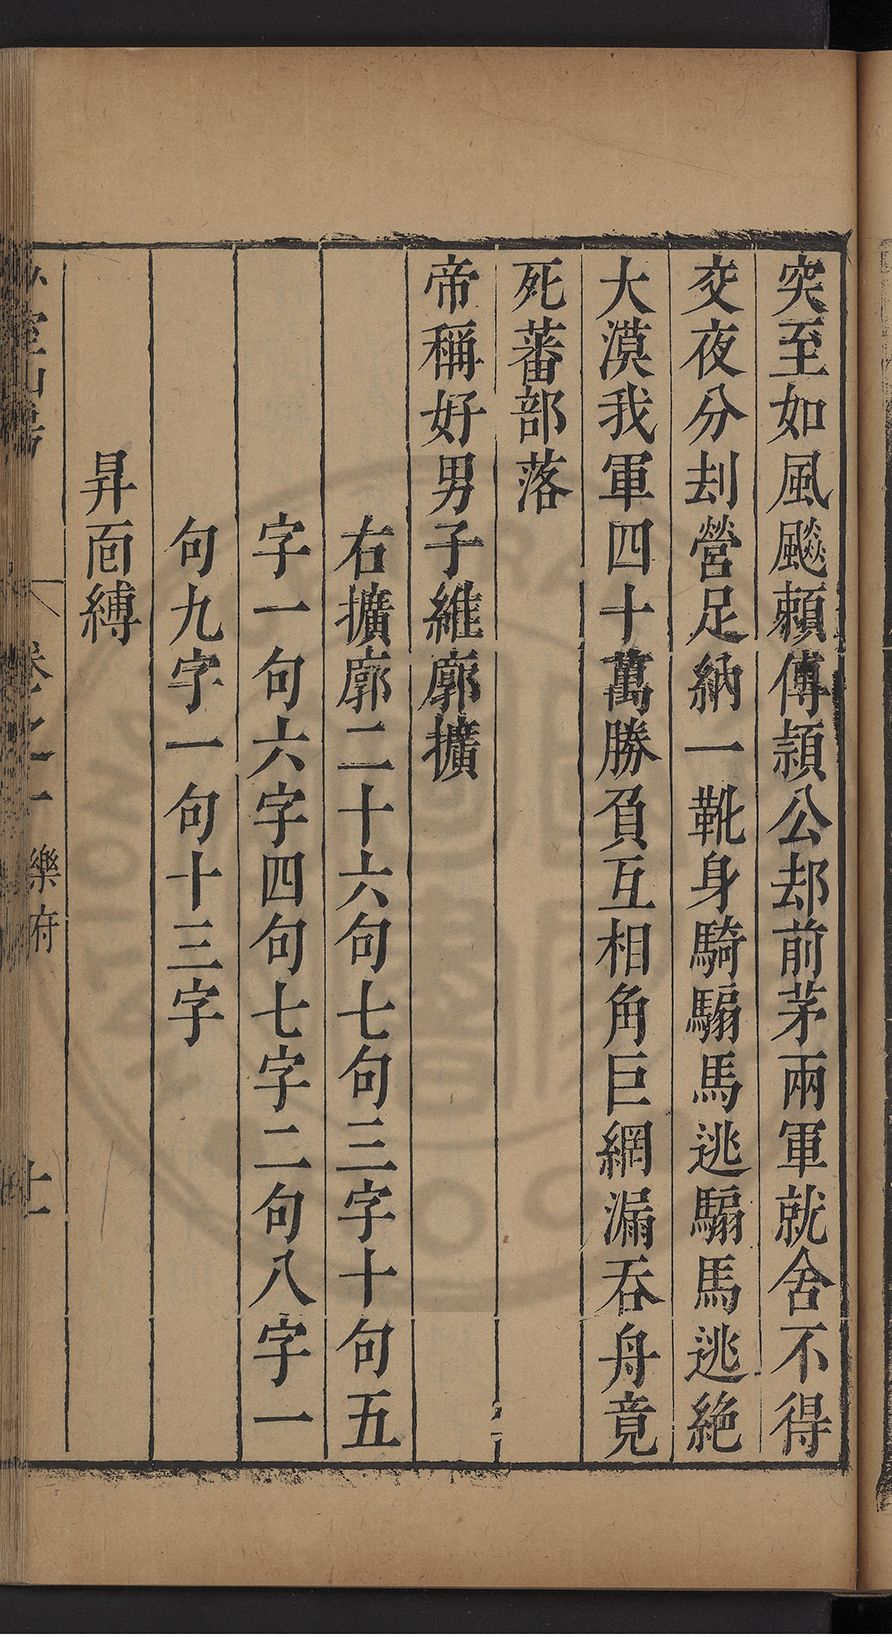 突至如風飈頼傅頴公却前茅兩軍就舍不得
交夜分刦營足納一靴身騎騸馬逃騸馬逃絶
大漠我軍四十萬勝負互相角巨網漏吞舟竟
死蕃部落
帝稱好男子維廓擴
右擴廓二十六句七句三字十句五
字一句六字四句七字二句八字一
句九字一句十三字
昇靣縛
卷之一 樂府